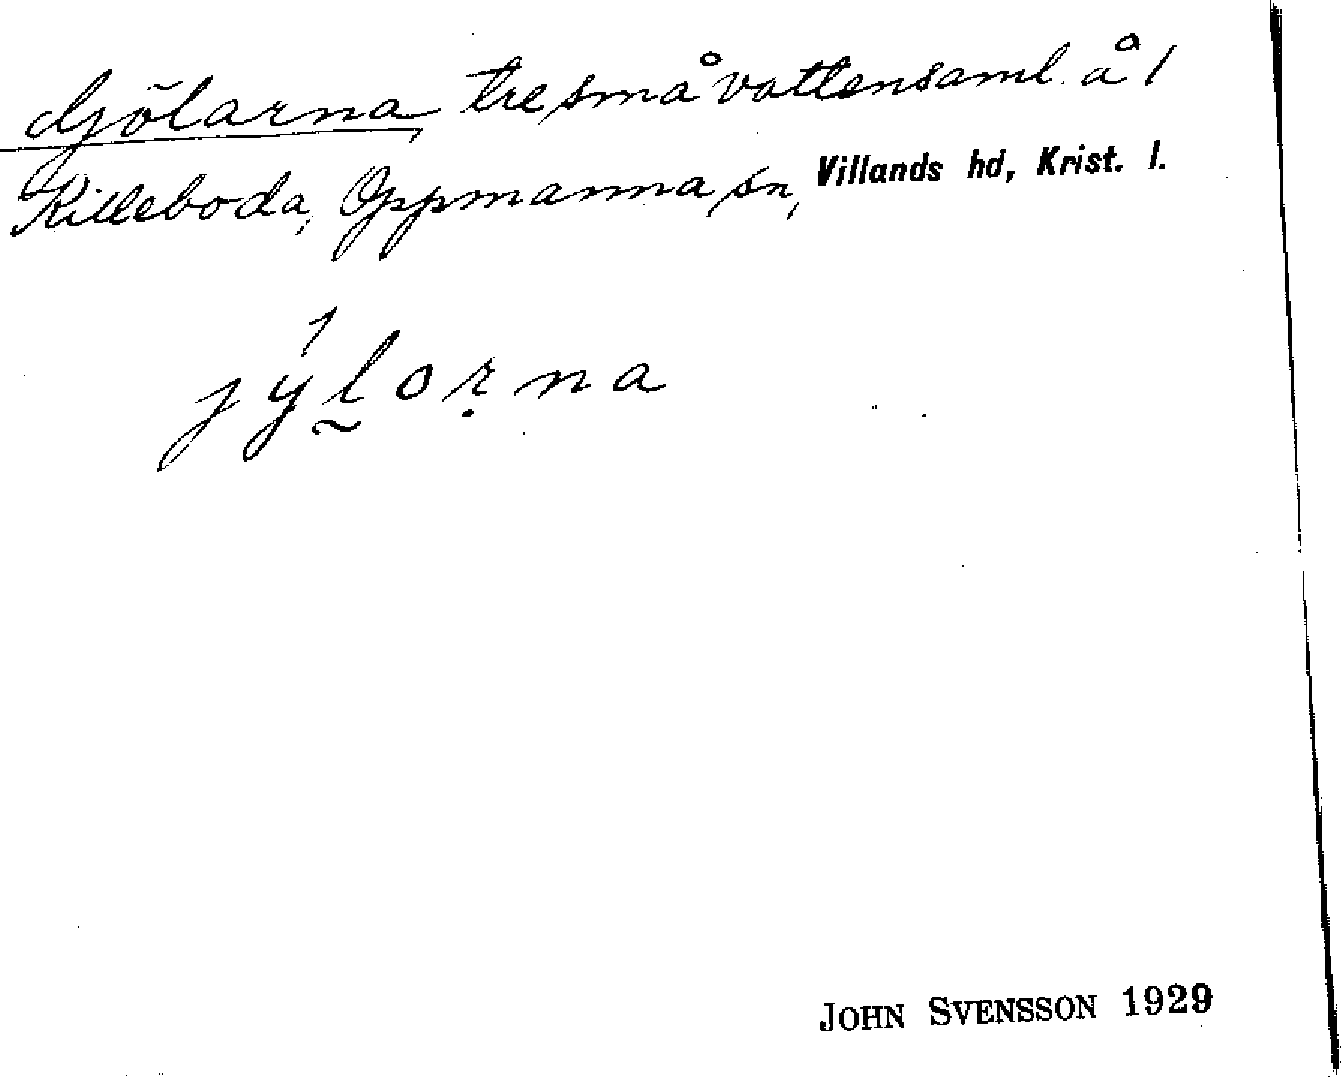 djölarna, tre små vattensaml. å 1
Killeboda, Oppmanna sn, Villands hd, Krist. l.
jýlorna
JOHN SVENSSON 1929